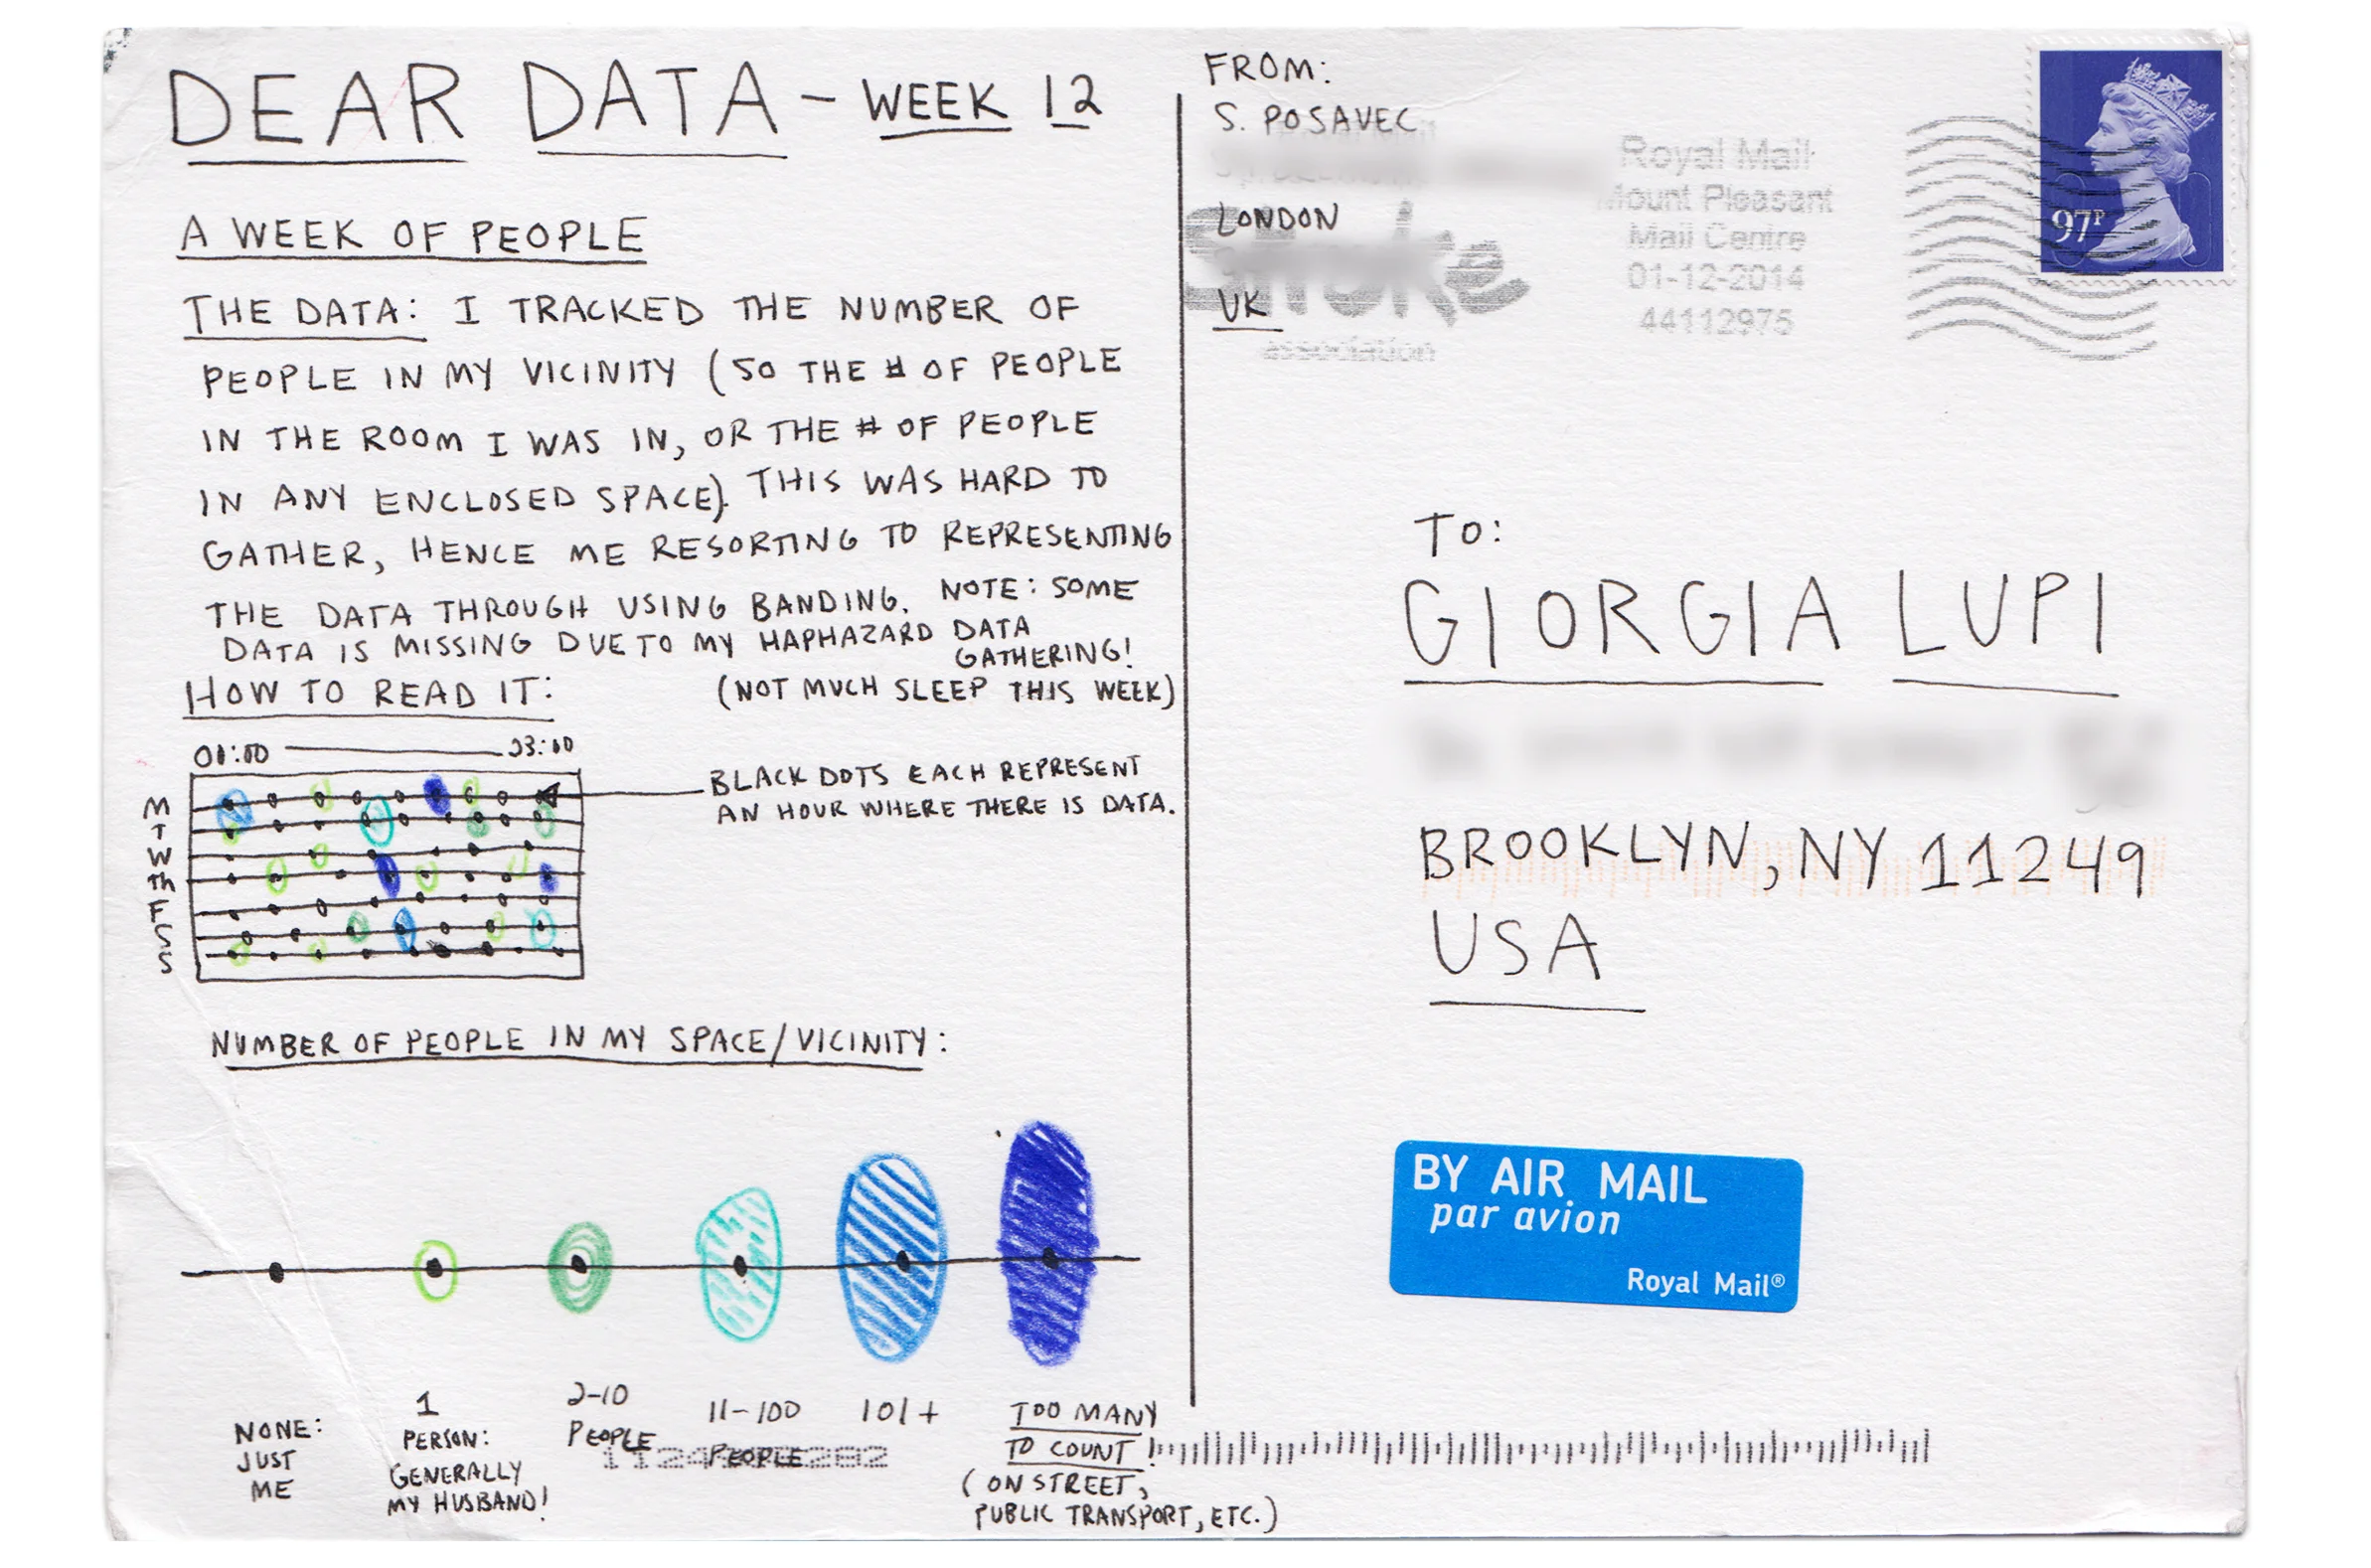 DEAR DATA - WEEK 12
A WEEK OF PEOPLE
THE DATA: I TRACKED THE NUMBER OF
PEOPLE IN MY VICINITY (SO THE # OF PEOPLE
IN THE ROOM I WAS IN, OR THE # OF PEOPLE
IN ANY ENCLOSED SPACE). THIS WAS HARD TO
GATHER, HENCE ME RESORTING TO REPRESENTING
THE DATA THROUGH USING BANDING. NOTE: SOME
DATA IS MISSING DUE TO MY HAPHAZARD DATA
GATHERING!
(NOT MUCH SLEEP THIS WEEK)
HOW TO READ IT:
23:00
M
T
W
Th
F
S
S
BLACK DOTS EACH REPRESENT
AN HOUR WHERE THERE IS DATA.
NUMBER OF PEOPLE IN MY SPACE/VICINITY:
NONE:
JUST
ME
1
PERSON:
GENERALLY
MY HUSBAND!
2-10
PEOPLE
11-100
PEOPLE
101+
TOO MANY
TO COUNT!
(ON STREET,
PUBLIC TRANSPORT, ETC.)
FROM:
S. POSAVEC
LONDON
UK
association
Royal Mail
Mount Pleasant
Mail Centre
01-12-2014
44112975
97P
TO:
GIORGIA LUPI
BROOKLYN, NY 11249
USA
BY AIR MAIL
par avion
Royal Mail®